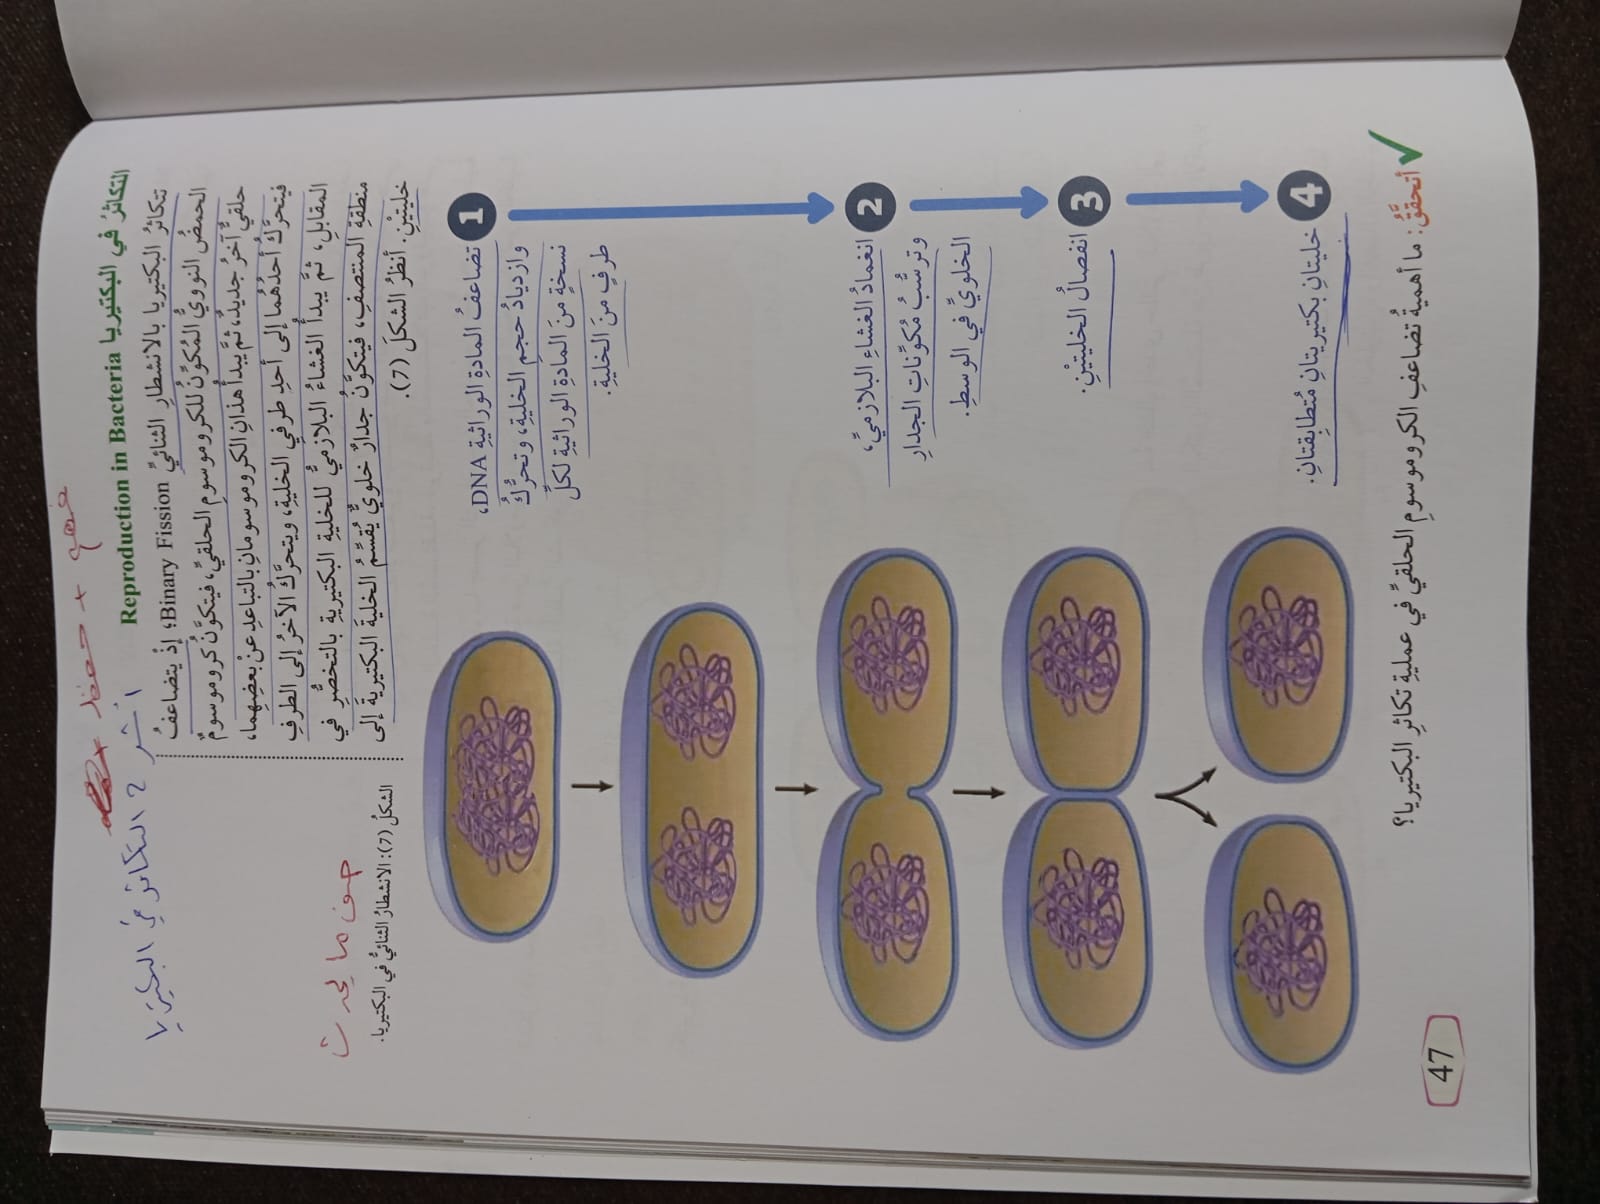 فهم + حفظ
اشر ٢ التكاثر في البكتيريا
التكاثرُ في البكتيريا Reproduction in Bacteria
تتكاثرُ البكتيريا بالانشطارِ الثنائيِّ Binary Fission؛ إذْ يتضاعفُ
الحمضُ النوويُّ المُكوِّنُ للكروموسومِ الحلقيِّ، فيتكوَّنُ كروموسومٌ
حلقيٌّ آخرُ جديدٌ، ثمَّ يبدأُ هذانِ الكروموسومانِ بالتباعدِ عنْ بعضِهِما،
فيتحرَّكُ أحدُهُما إلى أحدِ طرفيِ الخليةِ، ويتحرَّكُ الآخرُ إلى الطرفِ
المقابلِ، ثمَّ يبدأُ الغشاءُ البلازميُّ للخليةِ البكتيريةِ بالتخصُّرِ في
منطقةِ المنتصفِ، فيتكوَّنُ جدارٌ خلويٌّ يُقسِّمُ الخليةَ البكتيريةَ إلى
خليتَيْنِ. أنظرُ الشكلَ (7).
صف ما يحدث
الشكلُ (7): الانشطارُ الثنائيُّ في البكتيريا.
1
تضاعفُ المادةِ الوراثيةِ DNA،
وازديادُ حجمِ الخليةِ، وتحرُّكُ
نسخةٍ منَ المادةِ الوراثيةِ لكلِّ
طرفٍ منَ الخليةِ.
2
انغمادُ الغشاءِ البلازميِّ،
وترسُّبُ مُكوِّناتِ الجدارِ
الخلويِّ في الوسطِ.
3
انفصالُ الخليتَيْنِ.
4
خليتانِ بكتيريتانِ مُتطابقتانِ.
أتحقَّقُ: ما أهميةُ تضاعفِ الكروموسومِ الحلقيِّ في عمليةِ تكاثرِ البكتيريا؟
47